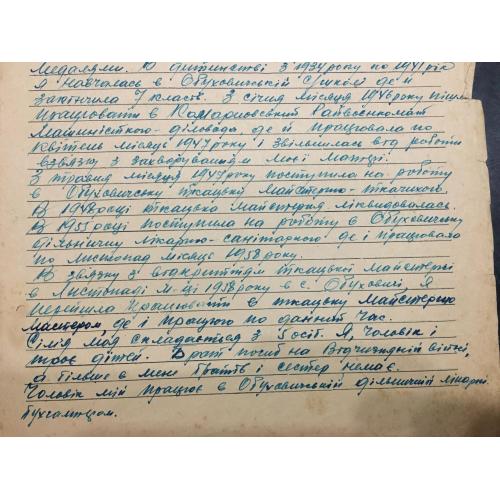 медалями. В дитинстві з 1934 року по 1941 рік
я навчалась в Обуховичській с/школі де й
закінчила 7 класів. З січня місяця 1946 року пішла
працювати в Комаровський Райвоєнкомат
Машиністкою-діловода, де й працювала по
квітень місяць 1947 року і звільнилась від роботи
взвязку з захворуванням моєї матері.
З травня місяця 1947 року поступила на роботу
в Обуховичську ткацьку майстерню-ткачихою.
В 1948 році ткацька майстерня ліквідовалась.
В 1955 році поступила на роботу в Обуховичську
дільничну лікарню-санітаркою де і працювала
по листопад місяць 1958 року.
В звязку з відкриттям ткацької майстерні
в листопаді м-ці 1958 року в с. Обуховичі, я
перейшла працювати в ткацьку майстерню
мастером, де і працюю по даний час.
Сімія моя складається з 5 осіб. Я, чоловік і
троє дітей. Брат погиб на Вітчизняній війні,
а більше в мене братів і сестер немає.
Чоловік мій працює в Обуховичській дільничній лікарні
бухгалтером.